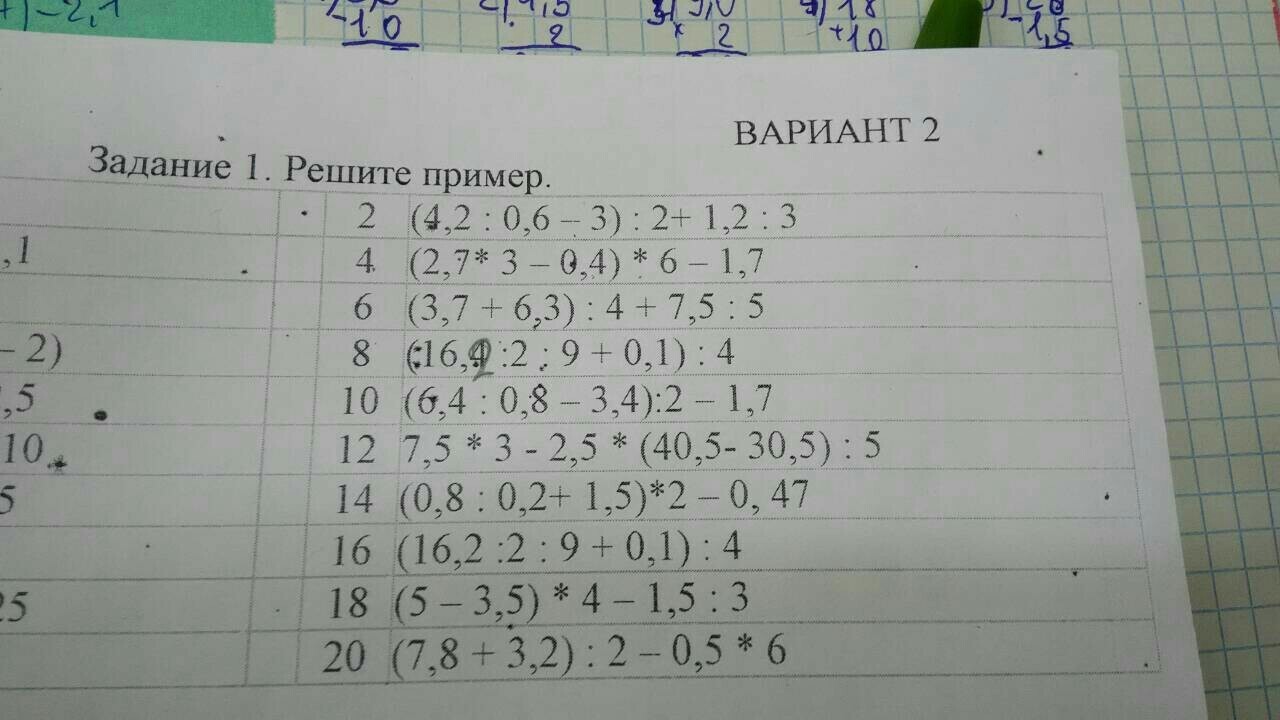 7) -2,1
-10
2
× 2
18
+10
-1,5
ВАРИАНТ 2
Задание 1. Решите пример.
2 (4,2 : 0,6 – 3) : 2+ 1,2 : 3
,1 4 (2,7* 3 – 0,4) * 6 – 1,7
6 (3,7 + 6,3) : 4 + 7,5 : 5
– 2) 8 (16,2 :2 : 9 + 0,1) : 4
,5 10 (6,4 : 0,8 – 3,4):2 – 1,7
10 12 7,5 * 3 - 2,5 * (40,5- 30,5) : 5
5 14 (0,8 : 0,2+ 1,5)*2 – 0, 47
16 (16,2 :2 : 9 + 0,1) : 4
25 18 (5 – 3,5) * 4 – 1,5 : 3
20 (7,8 + 3,2) : 2 – 0,5 * 6